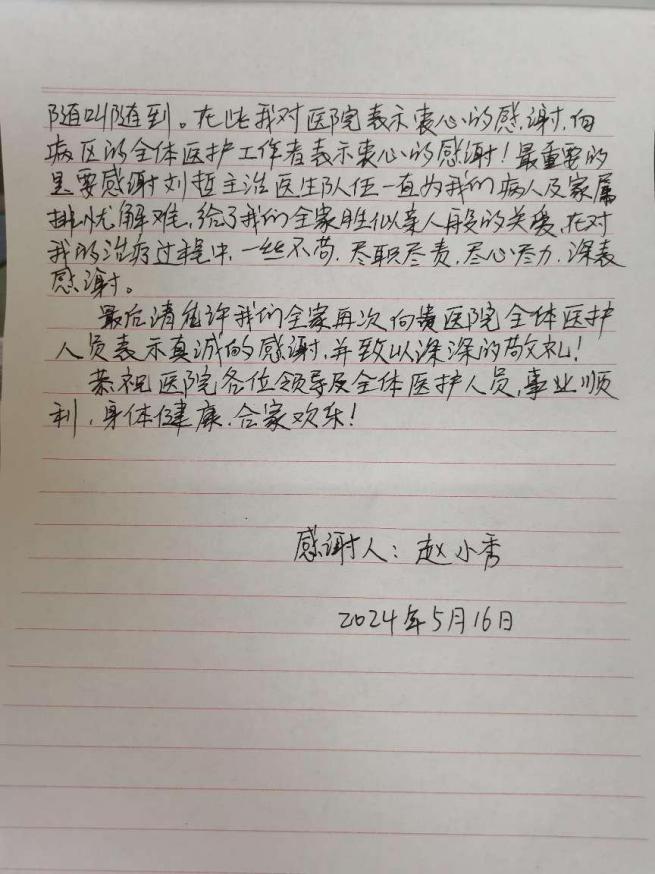 随叫随到。在此我对医院表示衷心的感谢,向
病区的全体医护工作者表示衷心的感谢!最重要的
是要感谢刘哲主治医生队伍一直为我们病人及家属
排忧解难,给了我们全家胜似亲人般的关爱,在对
我的治疗过程中,一丝不苟,尽职尽责,尽心尽力,深表
感谢。
最后请允许我们全家再次向贵医院全体医护
人员表示真诚的感谢,并致以深深的敬礼!
恭祝医院各位领导及全体医护人员,事业顺
利,身体健康,合家欢乐!
感谢人:赵小秀
2024年5月16日